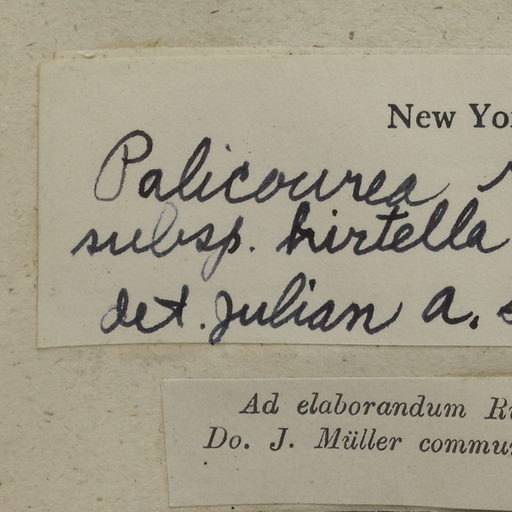 New Yo
Palicourea
subsp. hirtella
det. Julian A. S
Ad elaborandum Ru
Do. J. Müller commu